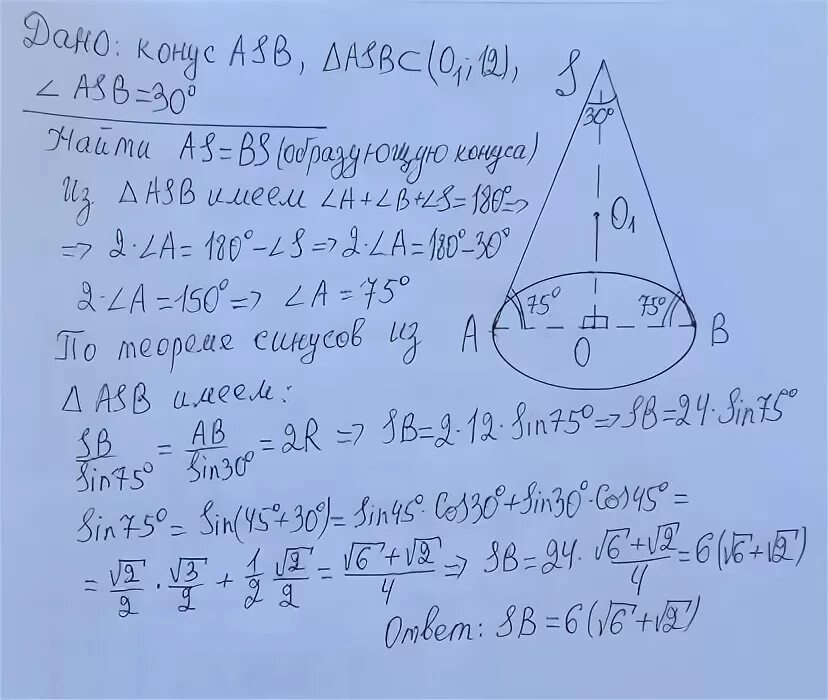 Дано: конус ASB, △ASB⊂(O₁; 12),
∠ ASB=30°
Найти AS=BS (образующую конуса)
Из △ASB имеем ∠A+∠B+∠S=180°=>
=> 2·∠A= 180°-∠S=>2·∠A=180°-30°
2·∠A=150°=> ∠A=75°
По теореме синусов из
△ASB имеем:
SB/Sin75° = AB/Sin30° =2R => SB=2·12·Sin75°=>SB=24·Sin75°
Sin75°= Sin(45°+30°)=Sin45°·Cos30°+Sin30°·Cos45°=
= √2/2 · √3/2 + 1/2 √2/2 = (√6+√2)/4 => SB=24·(√6+√2)/4=6(√6+√2)
Ответ: SB=6(√6+√2)
S
30°
O₁
75°
75°
A
O
B